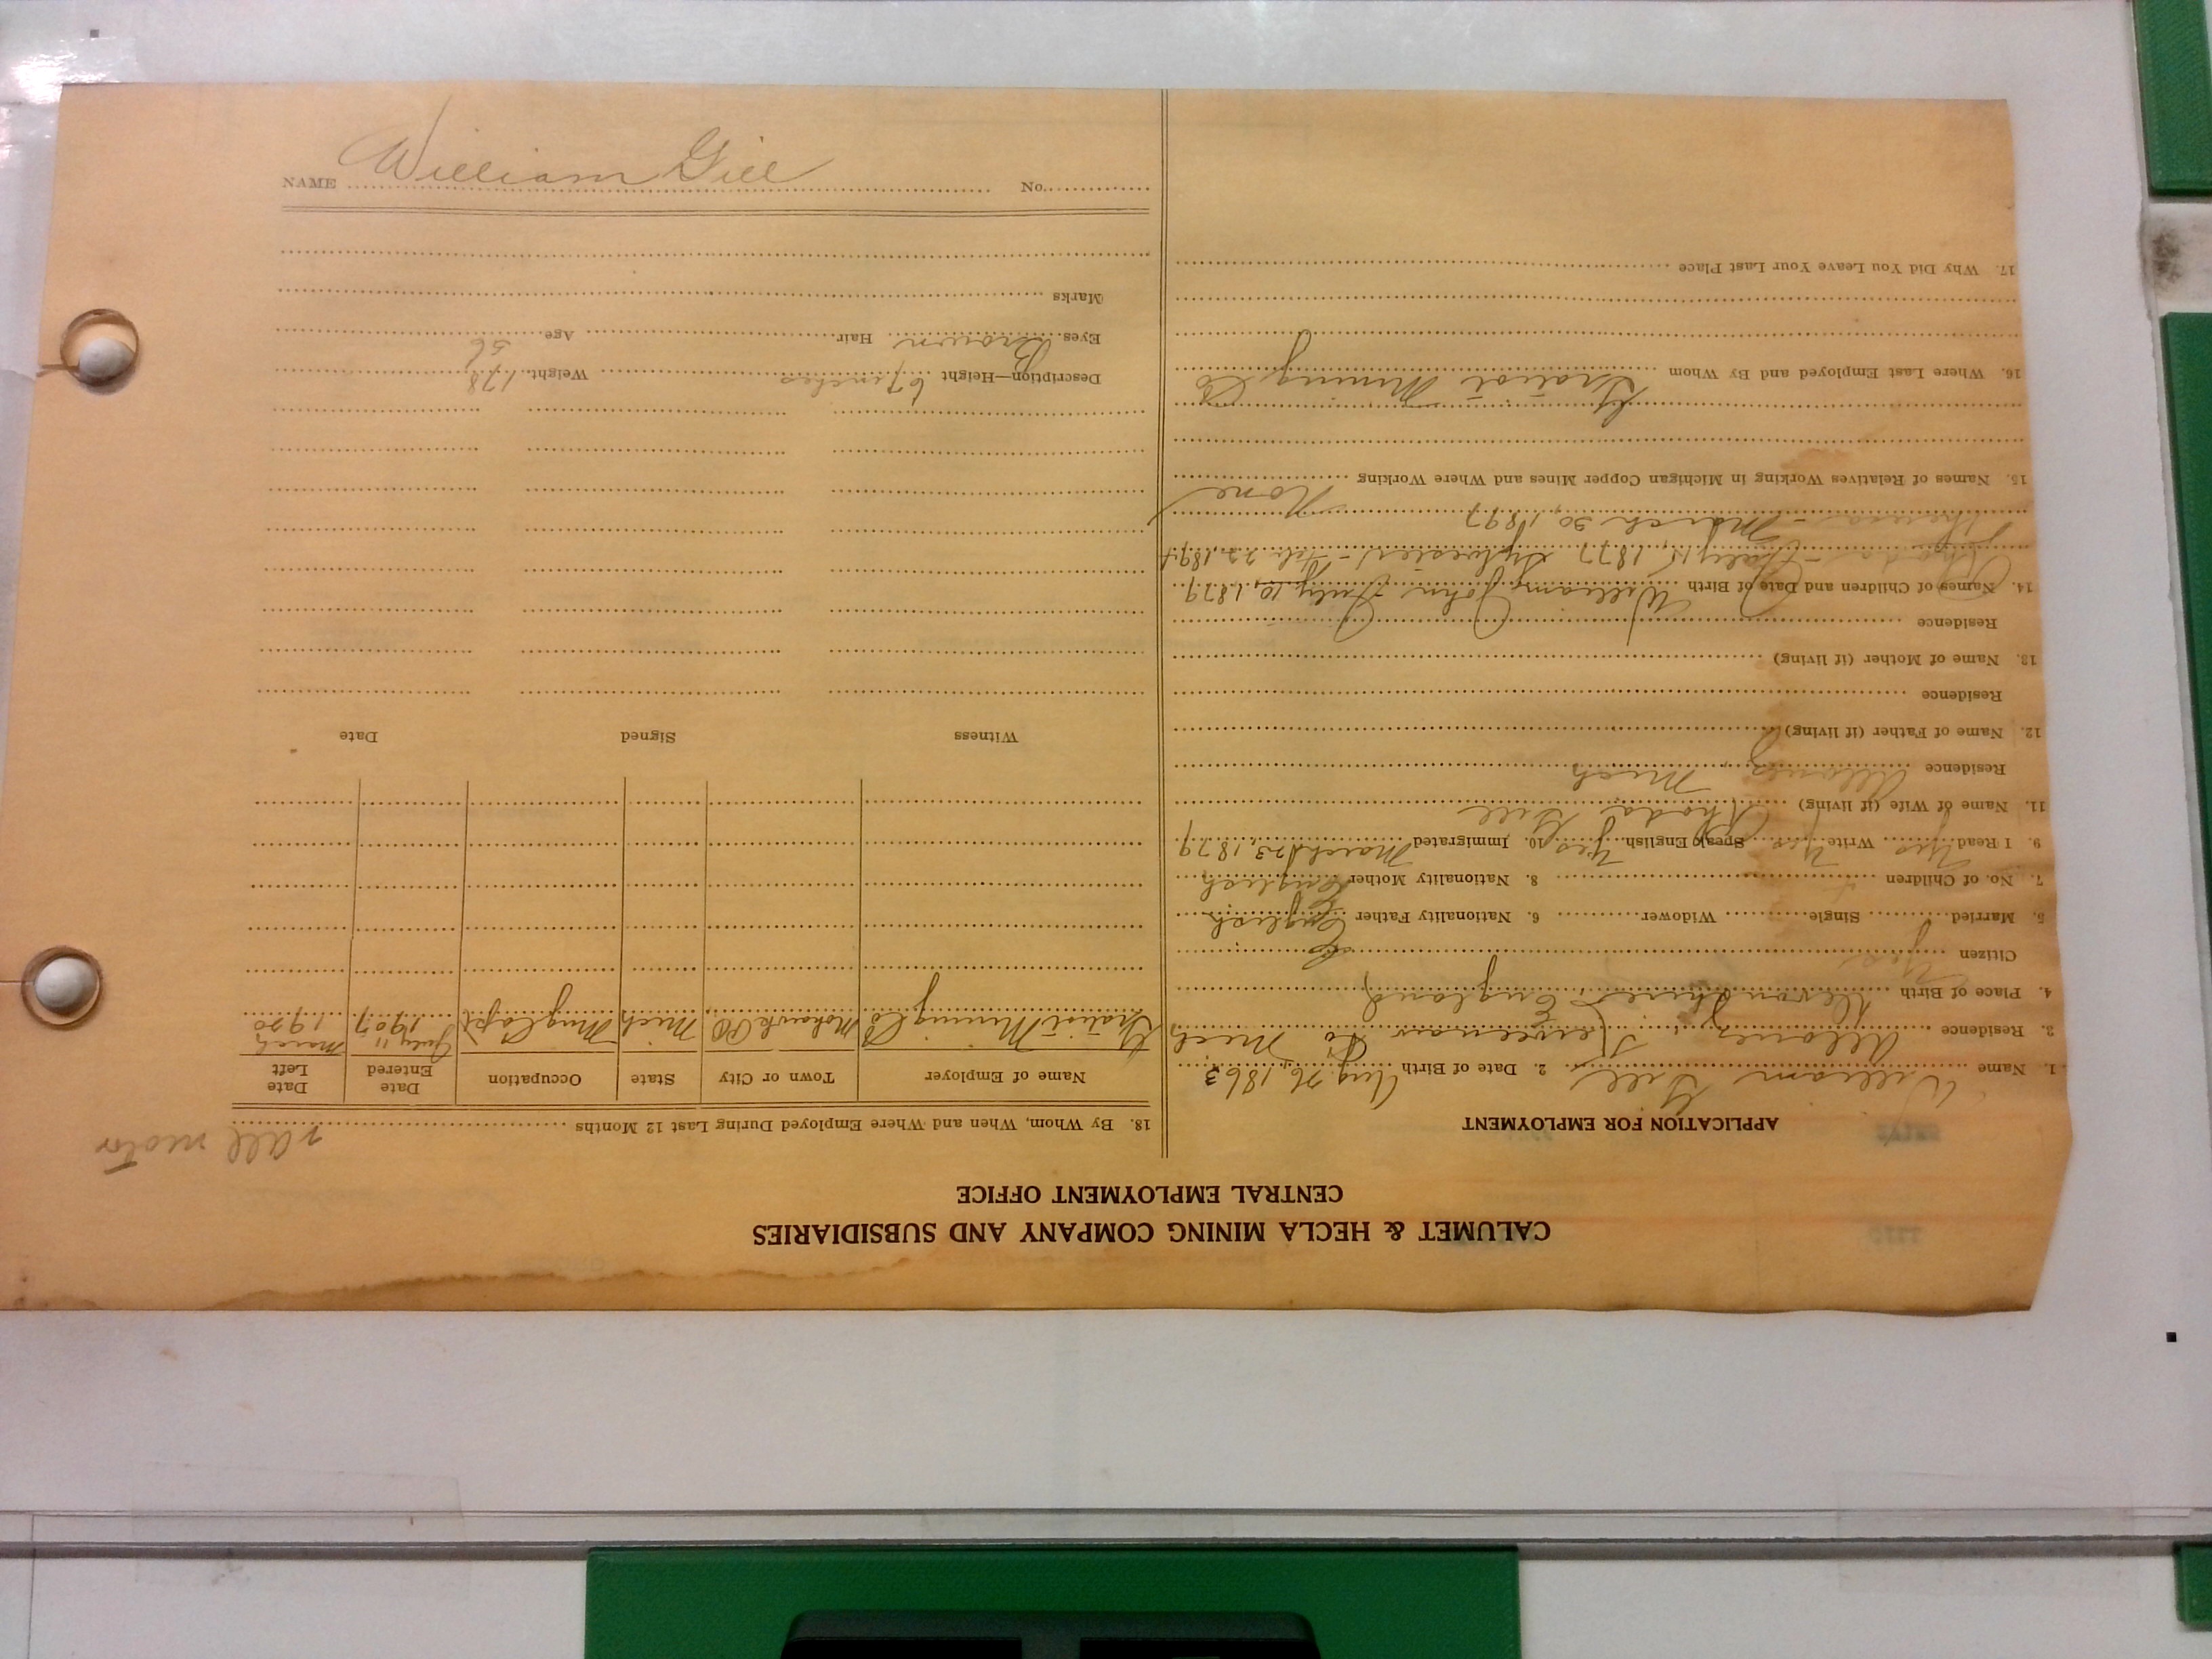 CALUMET & HECLA MINING COMPANY AND SUBSIDIARIES
CENTRAL EMPLOYMENT OFFICE
APPLICATION FOR EMPLOYMENT
1. Name William Gill 2. Date of Birth Aug 26, 1863
3. Residence Allouez, Keweenaw Co Mich
4. Place of Birth Devonshire, England
Citizen Yes
5. Married Single Widower 6. Nationality Father English
7. No. of Children 8. Nationality Mother English
9. I Read Yes Write Yes Speak English Yes 10. Immigrated March 23, 1879
11. Name of Wife (if living) Rhoda Gill
Residence Allouez, Mich
12. Name of Father (if living)
Residence
13. Name of Mother (if living)
Residence
14. Names of Children and Date of Birth William John - July 10, 1879
Rhoda - July 15, 1877 Sylvester - Feb. 22, 1894
March 30, 1897
15. Names of Relatives Working in Michigan Copper Mines and Where Working None
16. Where Last Employed and By Whom Gratiot Mining Co
17. Why Did You Leave Your Last Place
18. By Whom, When and Where Employed During Last 12 Months
Name of Employer Town or City State Occupation Date Entered Date Left
Gratiot Mining Co Mohawk Mich Mng Capt July 11 1907 March 1920
Witness Signed Date
Description—Height 67 inches Weight 178
Eyes Brown Hair Age 56
Marks
NAME William Gill No.